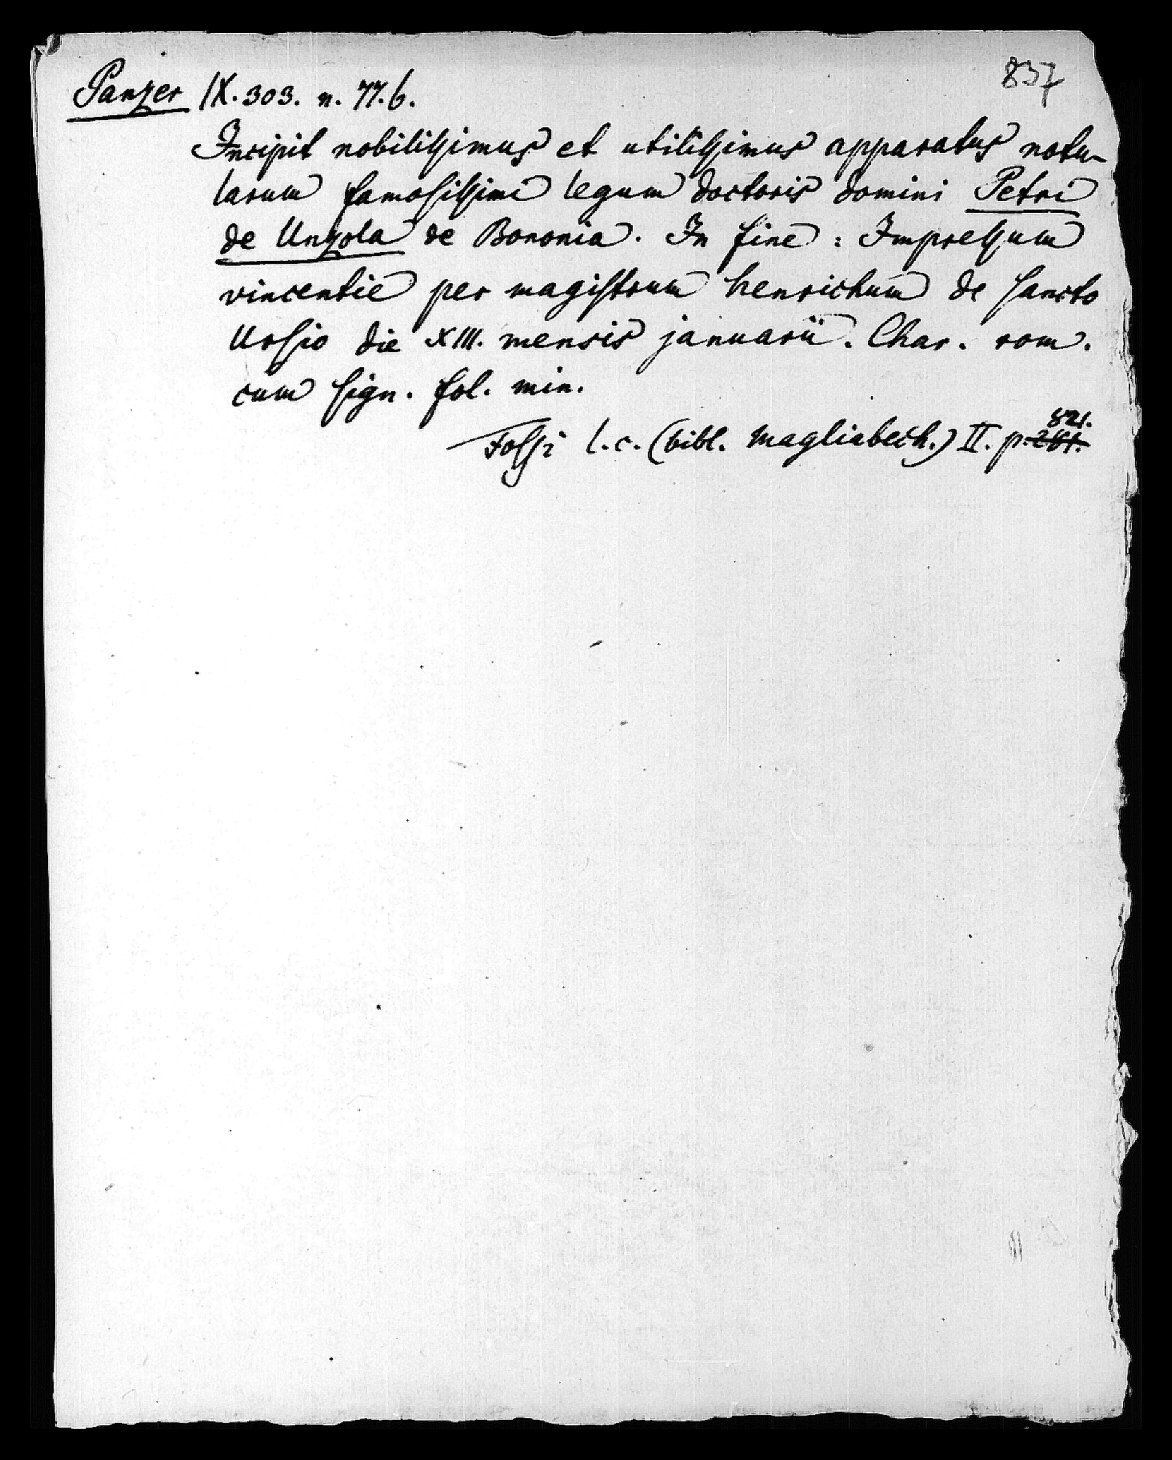 837
Panzer IX. 303. n. 77. b.
Incipit nobilissimus et utilissimus apparatus notu-
larum famosissimi legum doctoris domini Petri
de Unzola de Bononia. In fine: Impressum
vincentie per magistrum henrichum de sancto
Ursio die XIII. mensis januarii. Char. rom.
cum sign. fol. min.
821.
Fossi l. c. (bibl. Magliabech.) II. p.